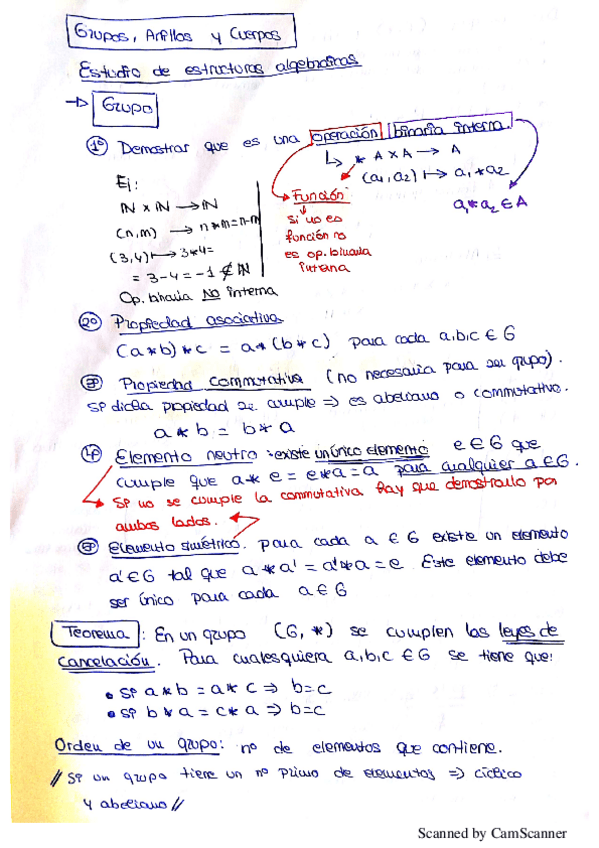 Grupos, Anillos y Cuerpos
Estudio de estructuras algebraicas
→ Grupo
1º Demostrar que es una operación binaria interna.
↳ * A x A → A
(a₁, a₂) ↦ a₁ * a₂
a₁ * a₂ ∈ A
Función
si no es
función no
es op. binaria
interna
Ej:
ℕ x ℕ → ℕ
(n,m) → n*m = n-m
(3,4) ↦ 3*4=
= 3-4 = -1 ∉ ℕ
Op. binaria NO interna
2º Propiedad asociativa
(a*b)*c = a*(b*c) para cada a,b,c ∈ G
3º Propiedad commutativa (no necesaria para ser grupo).
si dicha propiedad se cumple ⇒ es abeliano o commutativo.
a * b = b * a
4º Elemento neutro: existe un único elemento e ∈ G que
cumple que a * e = e * a = a para cualquier a ∈ G.
Si no se cumple la commutativa hay que demostrarlo por
ambos lados.
5º Elemento simétrico. para cada a ∈ G existe un elemento
a' ∈ G tal que a * a' = a' * a = e. Este elemento debe
ser único para cada a ∈ G
Teorema: En un grupo (G, *) se cumplen las leyes de
cancelación. Para cualesquiera a,b,c ∈ G se tiene que:
• Si a * b = a * c ⇒ b=c
• Si b * a = c * a ⇒ b=c
Orden de un grupo: nº de elementos que contiene.
// Si un grupo tiene un nº primo de elementos ⇒ cíclico
y abeliano //
Scanned by CamScanner